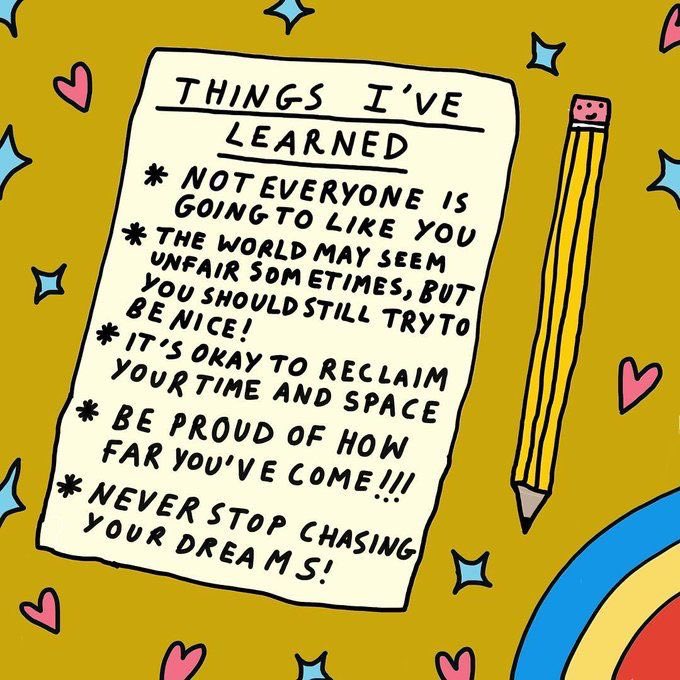 THINGS I'VE
LEARNED
* NOT EVERYONE IS
GOING TO LIKE YOU
* THE WORLD MAY SEEM
UNFAIR SOMETIMES, BUT
YOU SHOULD STILL TRY TO
BE NICE!
* IT'S OKAY TO RECLAIM
YOUR TIME AND SPACE
* BE PROUD OF HOW
FAR YOU'VE COME!!!
* NEVER STOP CHASING
YOUR DREAMS!